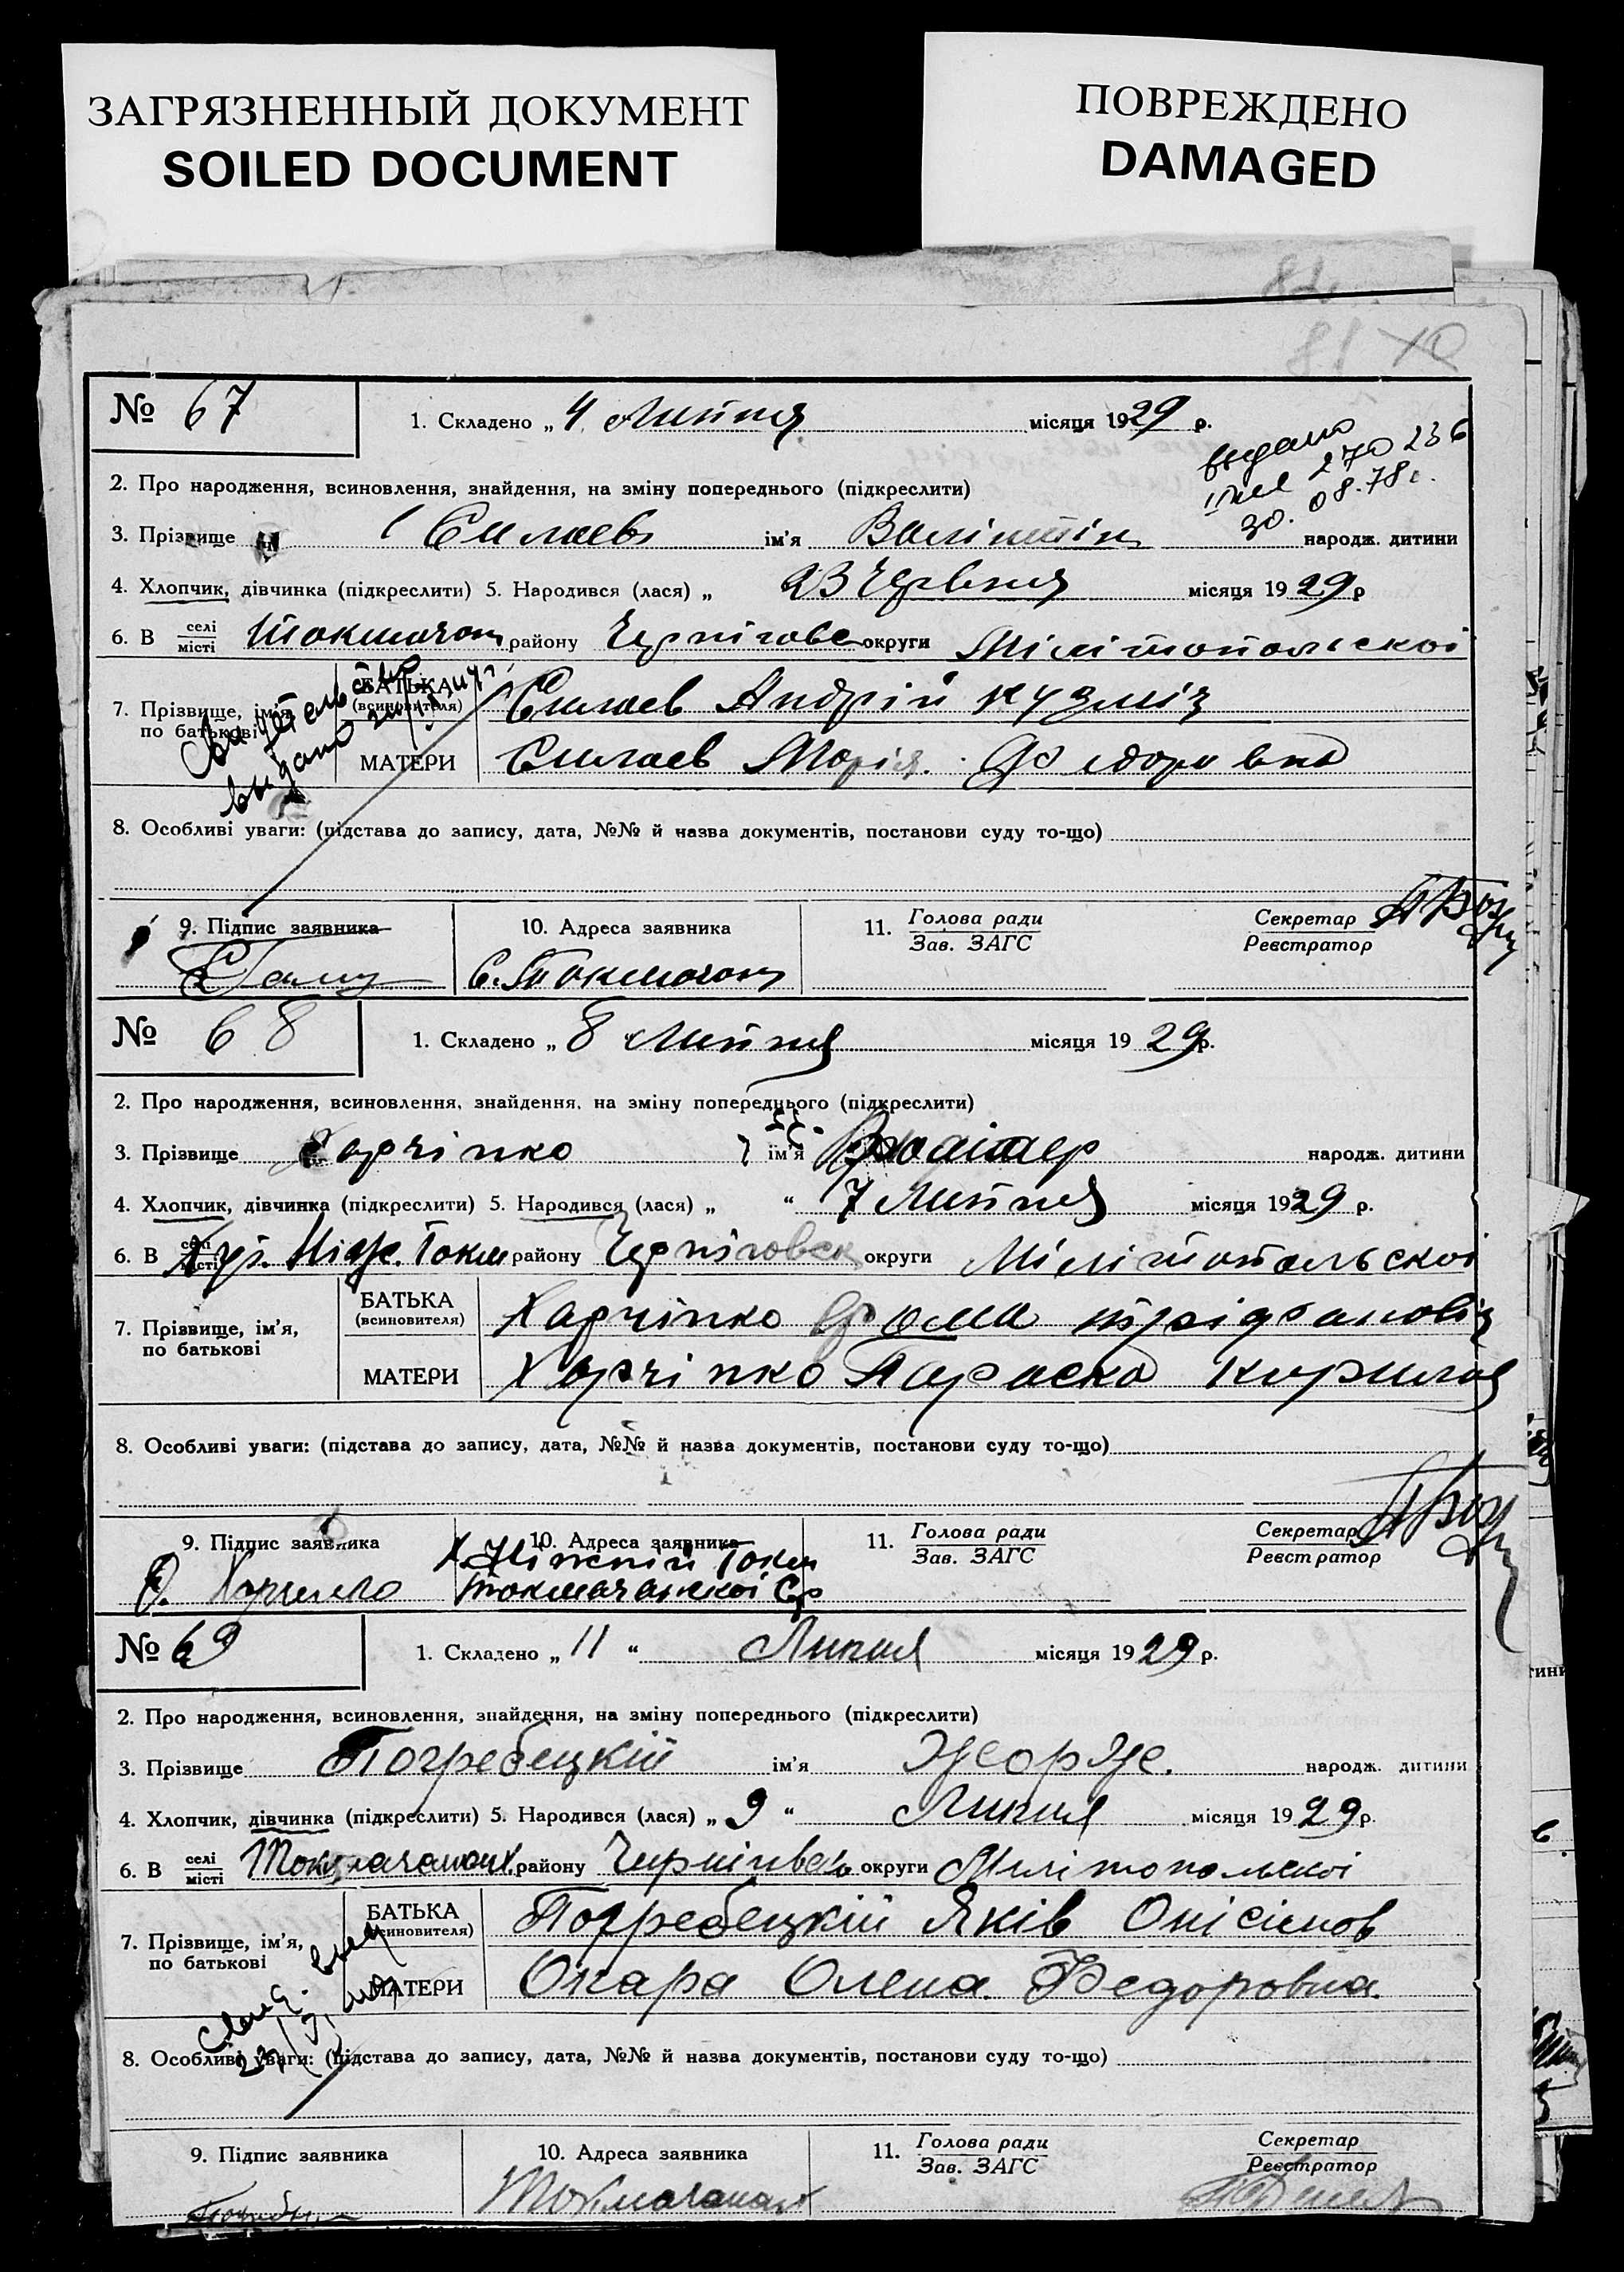 ЗАГРЯЗНЕННЫЙ ДОКУМЕНТ
SOILED DOCUMENT
ПОВРЕЖДЕНО
DAMAGED
81
№ 67
1. Складено „ 4 Липня місяця 1929 р.
выдано
270 236
30. 08.78г.
2. Про народження, всиновлення, знайдення, на зміну попереднього (підкреслити)
3. Прізвище Силаев ім'я Валінтін народж. дитини
4. Хлопчик, дівчинка (підкреслити) 5. Народився (лася) „ 23 Червня місяця 1929 р
6. В селі місті Токмачани району Черніговс округи Мілітопольскоі
7. Прізвище, ім'я, по батькові
Свидетельство
выдано
БАТЬКА (всиновителя) Силаев Андрій Кузміч
МАТЕРИ Силаев Марія Федоровна
8. Особливі уваги: (підстава до запису, дата, №№ й назва документів, постанови суду то-що)
9. Підпис заявника
10. Адреса заявника С. Токмачани
11. Голова ради Зав. ЗАГС
Секретар Реєстратор
№ 68
1. Складено „ 8 Липня місяця 1929 р.
2. Про народження, всиновлення, знайдення, на зміну попереднього (підкреслити)
3. Прізвище Харчінко ім'я народж. дитини
4. Хлопчик, дівчинка (підкреслити) 5. Народився (лася) „ “ 7 Липня місяця 1929 р.
6. В селі місті Хут. Ніж. Токм району Черніговск округи Мілітопольскоі
7. Прізвище, ім'я, по батькові
БАТЬКА (всиновителя) Харчінко Фома
МАТЕРИ Харчінко Параска Кирилов
8. Особливі уваги: (підстава до запису, дата, №№ й назва документів, постанови суду то-що)
9. Підпис заявника Ф. Харченко
10. Адреса заявника Х. Ніжній Токм
Токмачанскоі Ср
11. Голова ради Зав. ЗАГС
Секретар Реєстратор
№ 69
1. Складено „ 11 “ Липня місяця 1929 р.
2. Про народження, всиновлення, знайдення, на зміну попереднього (підкреслити)
3. Прізвище Погребецкій ім'я Жорж. народж. дитини
4. Хлопчик, дівчинка (підкреслити) 5. Народився (лася) „ 9 “ Липня місяця 1929 р.
6. В селі місті Токмачанах району округи Мелітопольскоі
7. Прізвище, ім'я, по батькові
БАТЬКА (всиновителя) Погребецкій Яків Онісімов
МАТЕРИ Окара Олена Федоровна.
8. Особливі уваги: (підстава до запису, дата, №№ й назва документів, постанови суду то-що)
9. Підпис заявника
10. Адреса заявника Токмачанах
11. Голова ради Зав. ЗАГС
Секретар Реєстратор